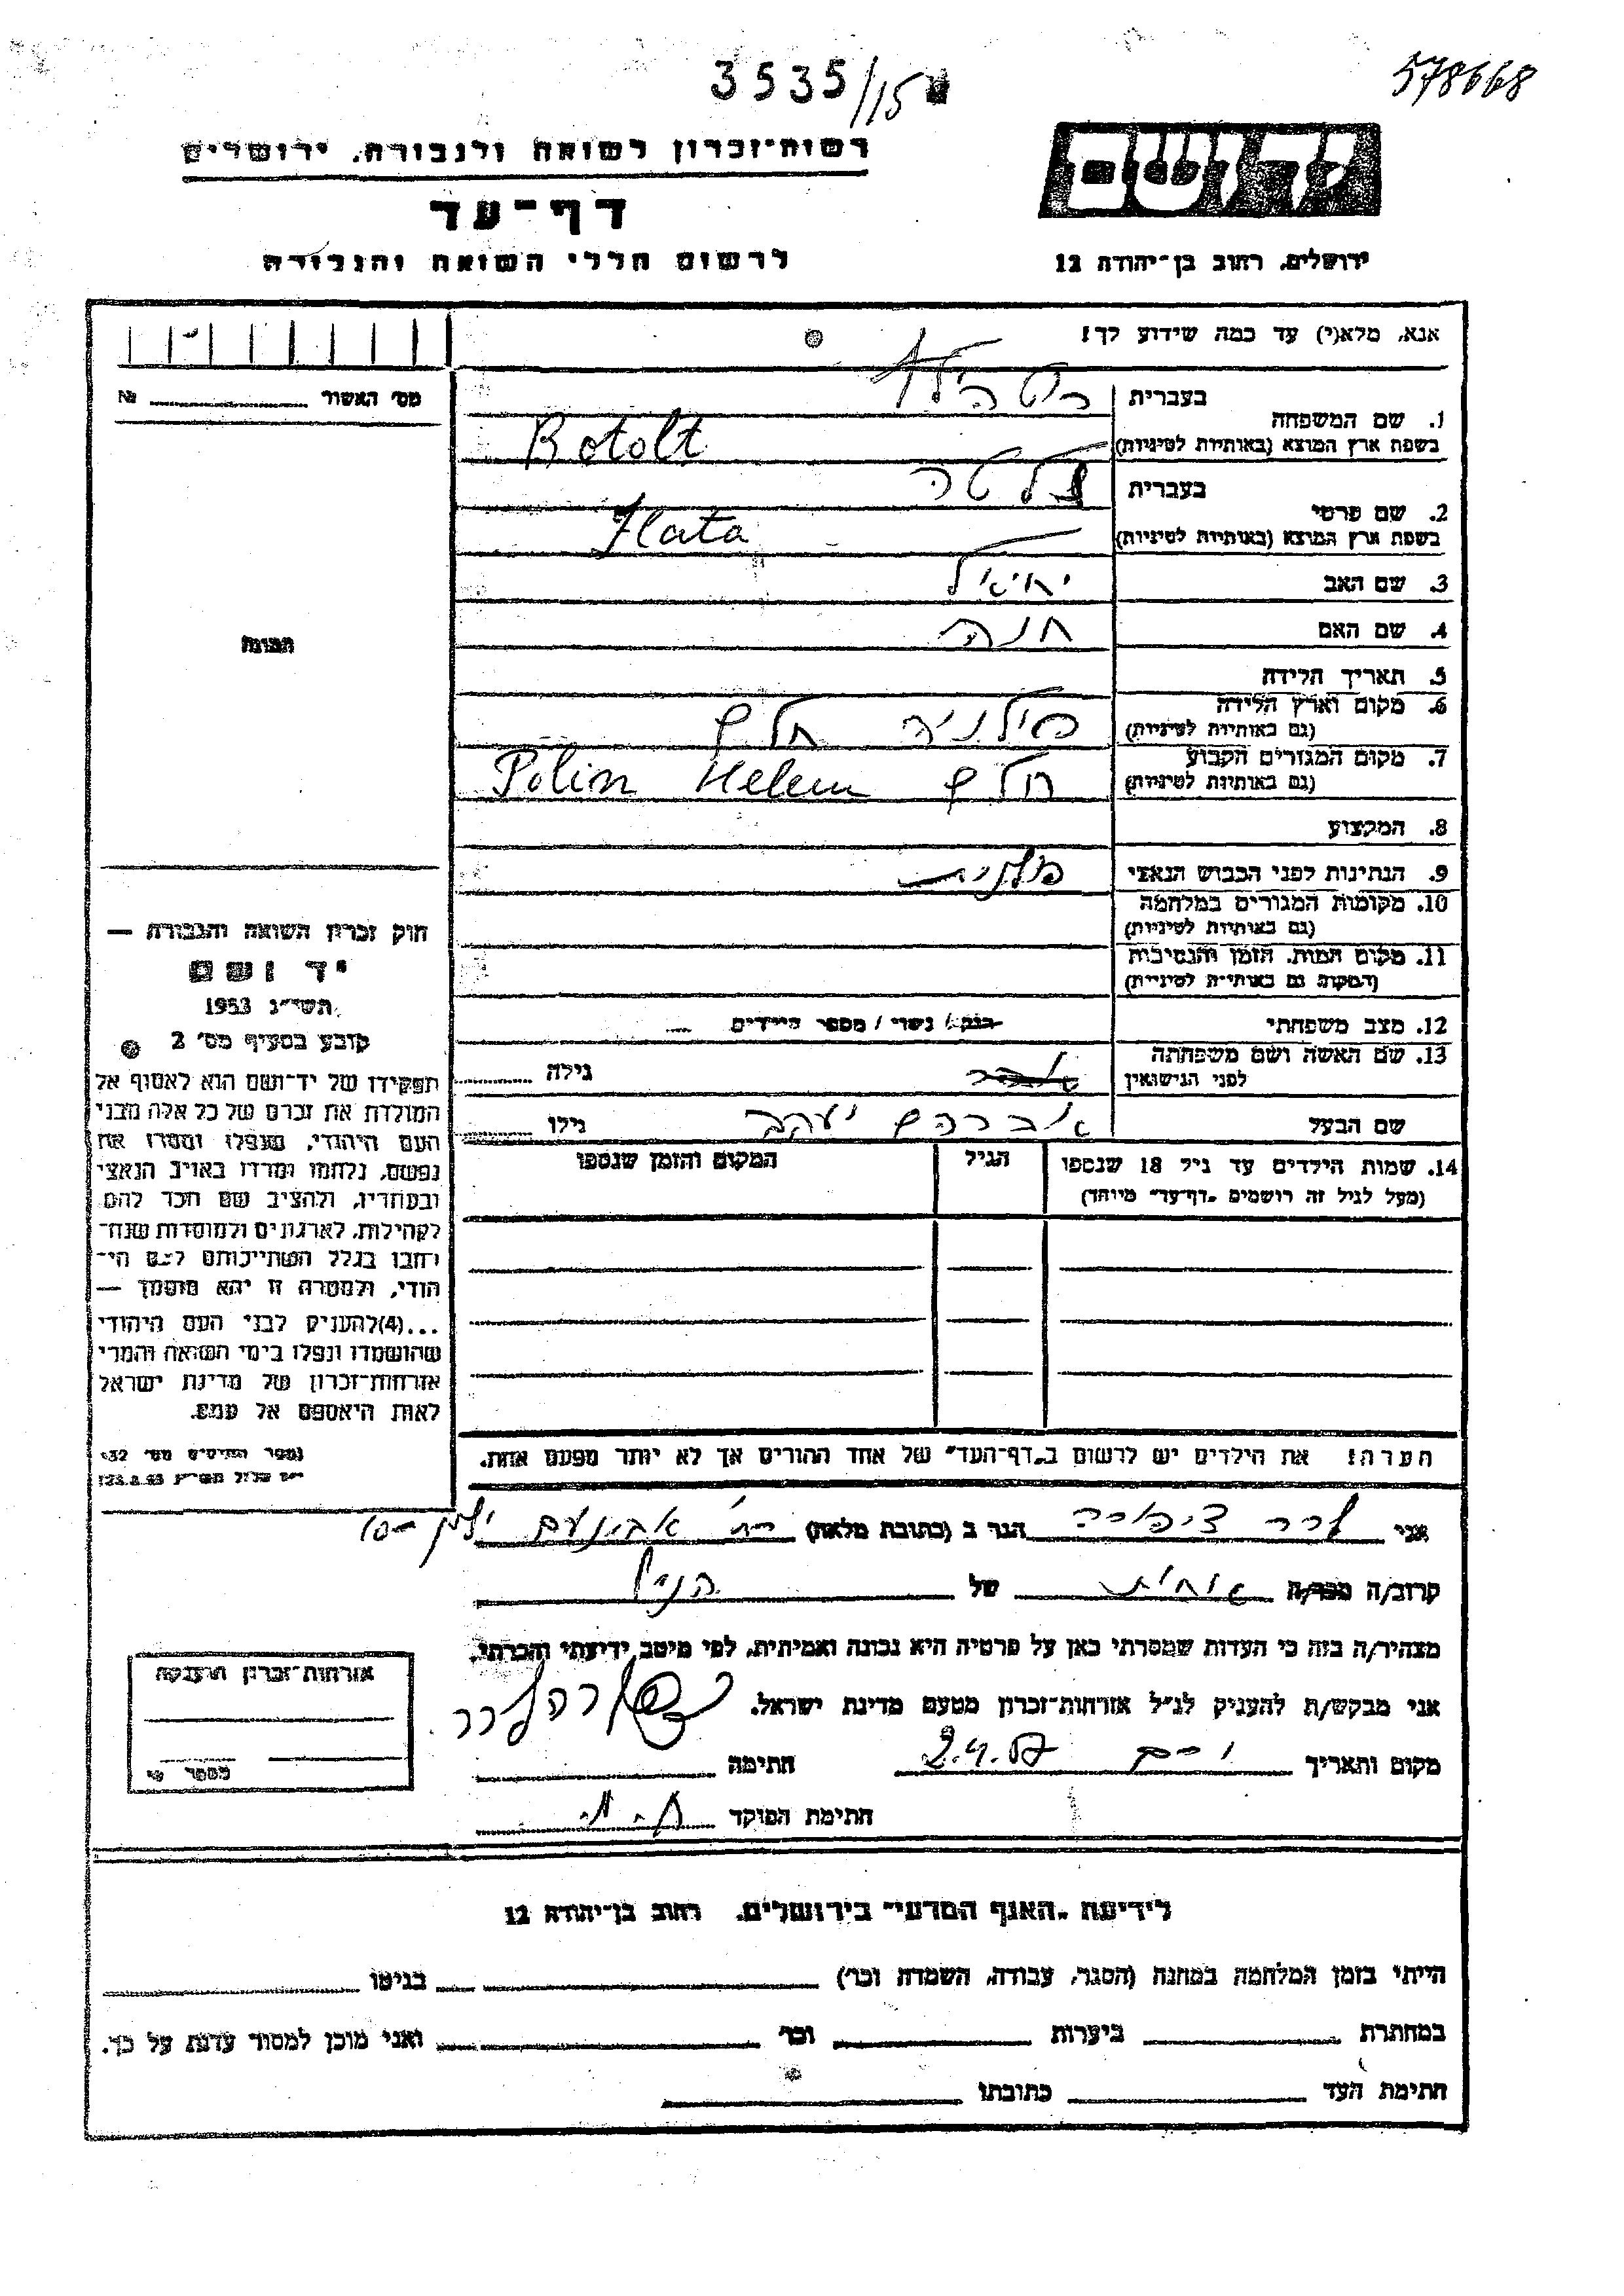 3535/15
578668
רשות־זכרון לשואה ולגבורה, ירושלים
יד ושם
דף־עד
לרשום חללי השואה והגבורה
ירושלים, רחוב בן־יהודה 12
אנא, מלא(י) עד כמה שידוע לך!
מס' האשור № 
1. שם המשפחה
בעברית
בשפת ארץ המוצא (באותיות לטיניות) Botolt
2. שם פרטי
בעברית זלטה
בשפת ארץ המוצא (באותיות לטיניות) Zlata
3. שם האב יחיאל
4. שם האם חנה
התמונה
5. תאריך הלידה
6. מקום וארץ הלידה
(גם באותיות לטיניות) פולניה חלם
7. מקום המגורים הקבוע
(גם באותיות לטיניות) חלם Helem Polin
8. המקצוע
9. הנתינות לפני הכבוש הנאצי פולנית
10. מקומות המגורים במלחמה
(גם באותיות לטיניות)
11. מקום המות, הזמן והנסיבות
(המקום גם באותיות לטיניות)
12. מצב משפחתי רווק / נשוי / מספר הילדים
13. שם האשה ושם משפחתה
לפני הנישואין גילה
שם הבעל אברהם יעקב גילו
14. שמות הילדים עד גיל 18 שנספו
(מעל לגיל זה רושמים „דף־עד” מיוחד)
הגיל
המקום והזמן שנספו
הערה! את הילדים יש לרשום ב„דף־העד” של אחד ההורים אך לא יותר מפעם אחת.
חוק זכרון השואה והגבורה —
יד ושם
תשי״ג 1953
קובע בסעיף מס' 2
תפקידו של יד־ושם הוא לאסוף אל
המולדת את זכרם של כל אלה מבני
העם היהודי, שנפלו ומסרו את
נפשם, נלחמו ומרדו באויב הנאצי
ובעוזריו, ולהציב שם וזכר להם
לקהילות, לארגונים ולמוסדות שנח־
רבו בגלל השתייכותם לעם הי־
הודי, ולמטרה זו יהא מוסמך —
...(4)להעניק לבני העם היהודי
שהושמדו ונפלו בימי השואה והמרי
אזרחות־זכרון של מדינת ישראל
לאות היאספם אל עמם.
אני ציפורה הגר ב (כתובת מלאה) רח' אבינועם ילין
קרוב/ה מכר/ה אחות של הנ״ל
מצהיר/ה בזה כי העדות שמסרתי כאן על פרטיה היא נכונה ואמיתית, לפי מיטב ידיעתי והכרתי.
אני מבקש/ת להעניק לנ״ל אזרחות־זכרון מטעם מדינת ישראל.
מקום ותאריך 2.4.57 חתימה
חתימת הפוקד
אזרחות־זכרון הוענקה
מספר
לידיעת „האגף המדעי” בירושלים, רחוב בן־יהודה 12
הייתי בזמן המלחמה במחנה (הסגר, עבודה, השמדה וכו') בגיטו
במחתרת ביערות וכו' ואני מוכן למסור עדות על כך.
חתימת העד כתובתו